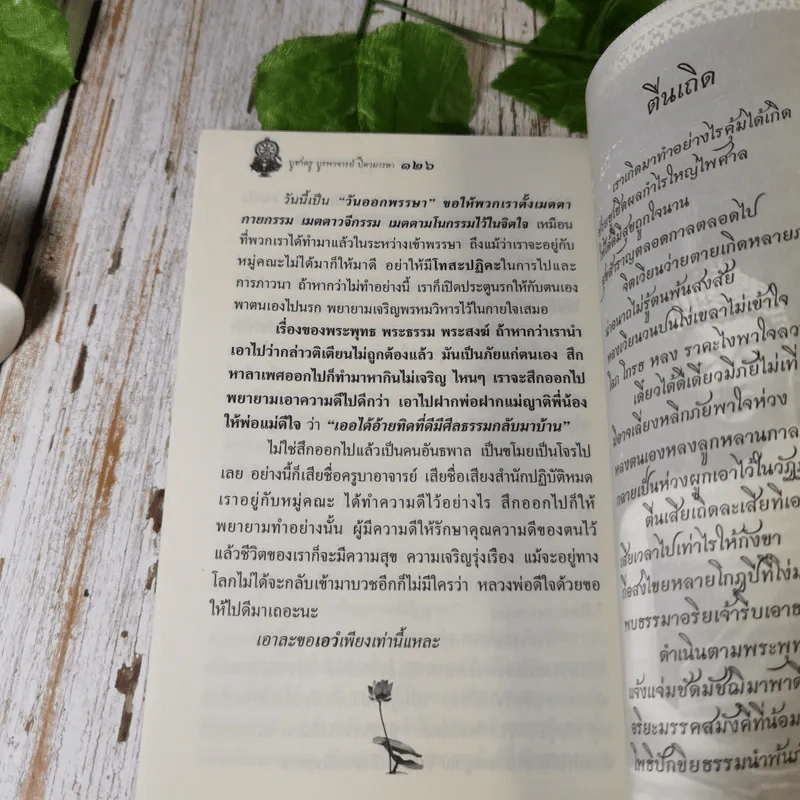 บูชาครู บูรพาจารย์ ปิดามารดา ๑๒๖
วันนี้เป็น “วันออกพรรษา” ขอให้พวกเราตั้งเมตตา
กายกรรม เมตตาวจีกรรม เมตตามโนกรรมไว้ในจิตใจ เหมือน
ที่พวกเราได้ทำมาแล้วในระหว่างเข้าพรรษา ถึงแม้ว่าเราจะอยู่กับ
หมู่คณะไม่ได้มาก็ให้มาดี อย่าให้มีโทสะปฏิคะในการไปและ
การภาวนา ถ้าหากว่าไม่ทำอย่างนี้ เราก็เปิดประตูนรกให้กับตนเอง
พาตนเองไปนรก พยายามเจริญพรหมวิหารไว้ในกายใจเสมอ
เรื่องของพระพุทธ พระธรรม พระสงฆ์ ถ้าหากว่าเรานำ
เอาไปว่ากล่าวติเตียนไม่ถูกต้องแล้ว มันเป็นภัยแก่ตนเอง สึก
หาลาเพศออกไปก็ทำมาหากินไม่เจริญ ไหนๆ เราจะสึกออกไป
พยายามเอาความดีไปดีกว่า เอาไปฝากพ่อฝากแม่ญาติพี่น้อง
ให้พ่อแม่ดีใจ ว่า “เออได้อ้ายทิดที่ดีมีศีลธรรมกลับมาบ้าน”
ไม่ใช่สึกออกไปแล้วเป็นคนอันธพาล เป็นขโมยเป็นโจรไป
เลย อย่างนี้ก็เสียชื่อครูบาอาจารย์ เสียชื่อเสียงสำนักปฏิบัติหมด
เราอยู่กับหมู่คณะ ได้ทำความดีไว้อย่างไร สึกออกไปก็ให้
พยายามทำอย่างนั้น ผู้มีความดีให้รักษาคุณความดีของตนไว้
แล้วชีวิตของเราก็จะมีความสุข ความเจริญรุ่งเรือง แม้จะอยู่ทาง
โลกไม่ได้จะกลับเข้ามาบวชอีกก็ไม่มีใครว่า หลวงพ่อดีใจด้วยขอ
ให้ไปดีมาเถอะนะ
เอาละขอเอวํเพียงเท่านี้แหละ
ตื่นเถิด
เราเกิดมาทำอย่างไรคุ้มได้เกิด
ผลกำไรใหญ่ไพศาล
มีสุขถูกใจนาน
สุขสำราญตลอดกาลตลอดไป
จิตเวียนว่ายตายเกิดหลาย
ไม่รู้ตนพ้นสงสัย
หลงเวียนวนปนโง่เขลาไม่เข้าใจ
โลภ โกรธ หลง ราคะไงพาใจ
เดี๋ยวได้ดีเดี๋ยวมีภัยไม่
มิอาจเลี่ยงหลีกภัยพาใจห่วง
หลงตนเองหลงลูกหลาน
กลายเป็นห่วงผูกเอาไว้ใน
ตื่นเสียเถิดละเสียที
เสียเวลาไปเท่าไรให้กังขา
ถือสงไขยหลายโกฏิปีที่โง่
พบธรรมาอริยเจ้ารีบเอา
ดำเนินตามพระพุทธ
แจ้งแจ่มชัดมัชฌิมาพา
อริยะมรรคสมังคีที่น้อม
โพธิปักขิยธรรมนำพ้น